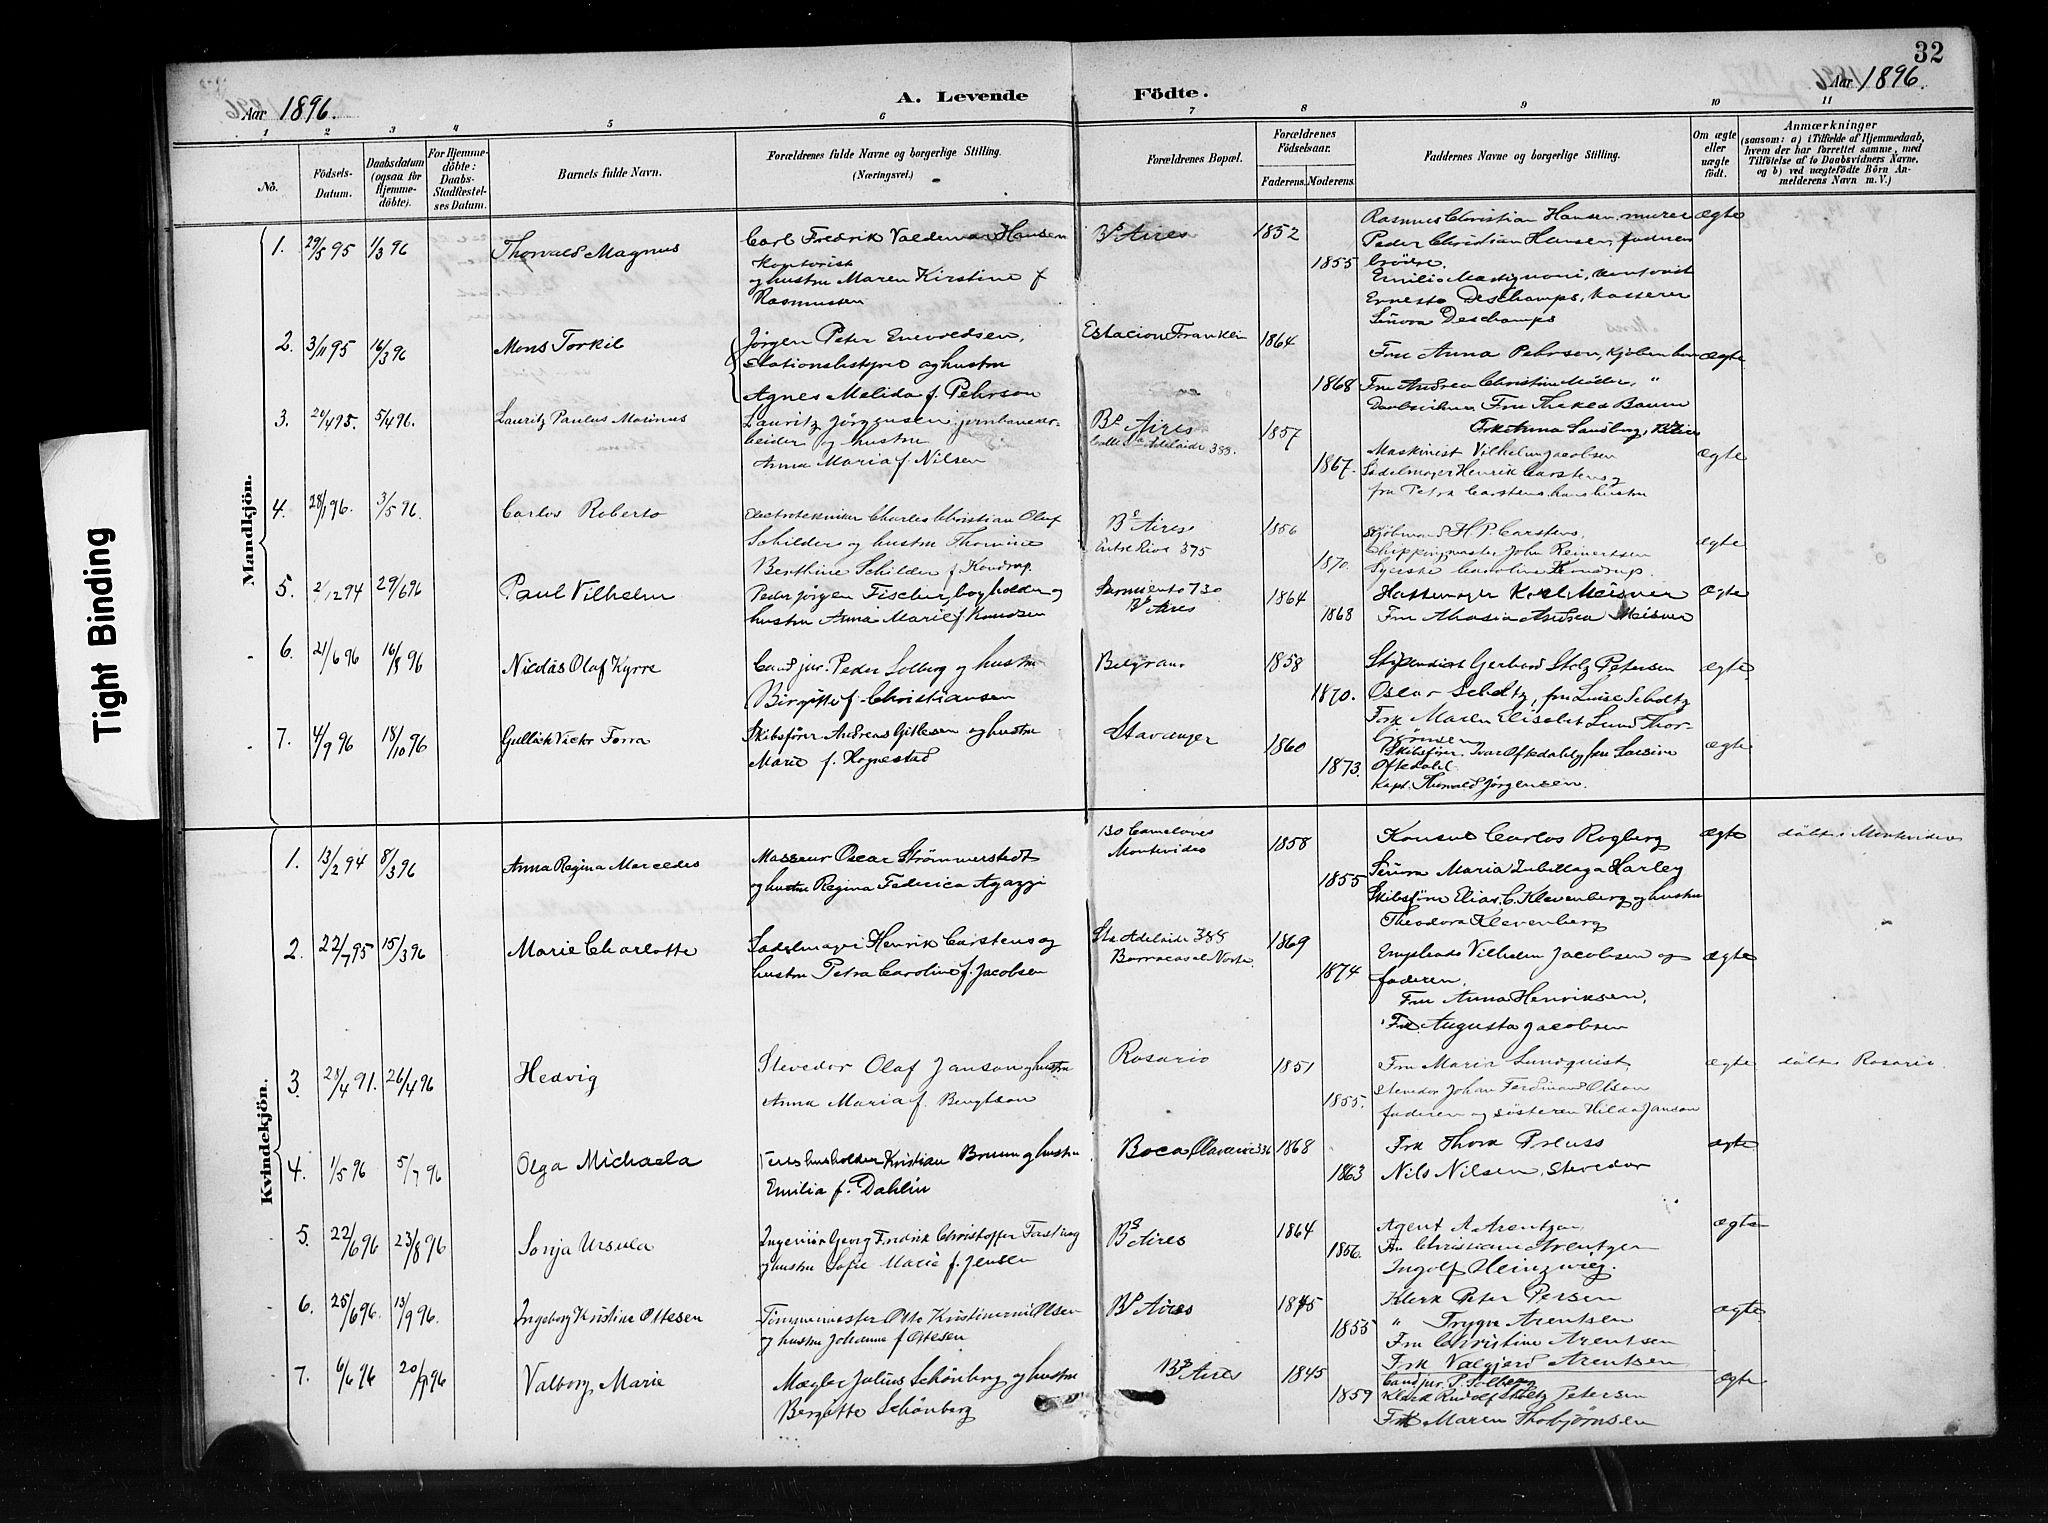 32
Aar 1896.
A. Levende Födte.
Aar 1896.
1 2 3 4 5 6 7 8 9 10 11
No.
Födsels-Datum.
Daabsdatum (ogsaa for Hjemmedöbte).
For Hjemmedöbte: Daabs-Stadfæstelses Datum.
Barnets fulde Navn.
Forældrenes fulde Navne og borgerlige Stilling.
(Næringsvei.)
Forældrenes Bopæl.
Forældrenes Födselsaar.
Faderens. Moderens.
Faddernes Navne og borgerlige Stilling.
Om ægte eller uægte födt.
Anmærkninger
(saasom: a) i Tilfælde af Hjemmedaab, hvem der har forrettet samme, med Tilföielse af to Daabsvidners Navne, og b) ved uægtefödte Börn Anmelderens Navn m. V.)
Tight Binding
Mandkjön.
1. 29/5 95 1/3 96 Thorvald Magnus
Carl Fredrik Valdemar Hansen
Kontorist
og hustru Maren Kirstine f
Rasmussen
Bs Aires 1852 1855
Rasmus Christian Hansen, murer
Peder Christian Hansen, faderens
brödre
Ernesto Deschamps, Kasserer
Señora Deschamps
ægte
2. 3/11 95 16/3 96 Mons Torkil
Jörgen Peter Enevoldsen,
Stationsbestyrer og hustru
Agnes Melida f. Pehrson
Estacion Franklin 1864 1868
Fru Anna Pehrson, Kjöbenhavn
Fru Andrea Christine Möller, "
Frk Anna Sandberg, Bs Aires
ægte
3. 5/4 96. Lauritz Paulus Marinus
Lauritz Jörgensen jernbanear-
beider og hustru
Anna Maria f. Nilsen
Bs Aires
calle Sta Adelaide 388.
1857 1867.
Maskinist Vilhelm Jacobsen
Sadelmager Henrik Carstens og
fru Petra Carstens, hans hustru
ægte
4. 28/1 96. 3/5 96. Carlos Roberto
Electrotekniker Charles Christian Olaf
Schilder og hustru Thomine
Berthine Schilder f. Kondrup.
Bs Aires
Entre Rios 375
1856 1870.
H. P. Carstens,
Shippingmaster John Reinertsen
Syerske Caroline Kondrup.
ægte
5. 2/12 94 29/6 96 Paul Vilhelm
Peder Jörgen Fischer, bogholder og
hustru Anna Marie f. Knudsen
Sarmiento 730
Bs Aires
1864 1868
Hattemager Karl Meisner
Fru Meisner
ægte
6. 21/6 96 16/8 96 Nicolás Olaf Kyrre
Cand jur. Peder Solberg og hustru
Birgitte f. Christiansen
Belgrano 1858 1870.
Stipendiat Gerhard Stolz Petersen
Oscar Scholtz, fru Luise Scholtz
Frk Maren Elisabet Lund Thor-
björnsen
ægte
7. 4/9 96 18/10 96 Gullack Victor Torra
Skibsförer Andreas Gitlesen og hustru
Marie f. Hognestad
Stavanger 1860 1873.
Skibsförer Ivar Oftedahl og fru
Oftedahl
Kapt. Thorvald Jörgensen.
ægte
Kvindekjön.
1. 13/2 94 8/3 96 Anna Regina Mercedes
Masseur Oscar Strömmerstedt
og hustru Regina Federica Agazzi
130 Camelones
Montevideo
1858 1855
Konsul Carlos Rogberg
Señora Maria Harley
Skibsförer Elias C. Klevenberg og hustru
Theodora Klevenberg
ægte döbt i Montevideo
2. 22/7 95 15/3 96 Marie Charlotte
Sadelmager Henrik Carstens og
hustru Petra Caroline f. Jacobsen
Sta Adelaide 388
Barracas al Norte
1869 1874
Vilhelm Jacobsen og
faderen,
Fru Anna Henriksen,
Frk. Augusta Jacobsen
ægte
3. 23/4 91. 26/4 96 Hedvig
Stevedor Olaf Janson og hustru
Anna Maria f. Bengtson
Rosario 1851 1855.
Fru Maria Lundquist
Stevedor Johan Ferdinand Olson
faderen og sösteren Hilda Janson
ægte döbt i Rosario.
4. 1/5 96 5/7 96 Olga Michaela
Kristian Bruun og hustru
Emilia f. Dahlin
Boca Olavarria 336 1868 1863
Frk Thora Preuss
Nils Nilsen, Stevedor
ægte
5. 22/6 96 23/8 96 Sonja Ursula
Ingeniör Georg Fredrik Christoffer Forstrog
og hustru Sofie Marie f. Jensen
Bs Aires 1864 1856.
Agent A Arentzen
Fru Christiane Arentzen
Ingolf Heinzwieg.
ægte
6. 25/6 96. 13/9 96. Ingeborg Kristine Ottesen
Tömmermester Otto Olsen
og hustru Johanne f. Ottesen
Bs Aires 1845 1855
Klerk Peter Persen
" Trygve Arentsen
Fru Christine Arentsen
Frk Valgjerd Arentsen
ægte
7. 6/6 96 20/9 96 Valborg Marie
Mægler Julius Schönberg og hustru
Bergitte Schönberg
Bs Aires 1845 1859
Cand jur. P. Solberg
Klerk Rudolf Stoltz Petersen
Frk Maren Thorbjörnsen
ægte